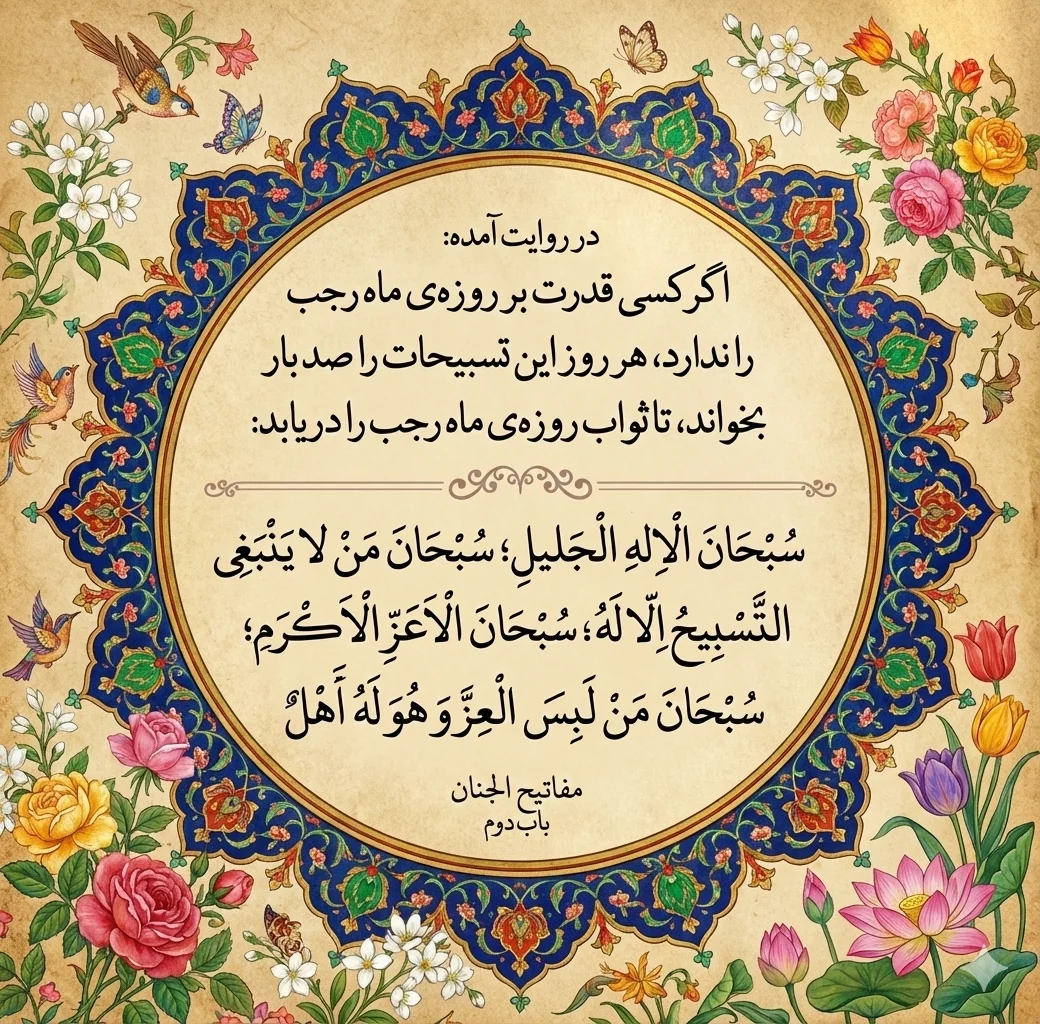 در روایت آمده:
اگر کسی قدرت بر روزه‌ی ماه رجب
را ندارد، هر روز این تسبیحات را صد بار
بخواند، تا ثواب روزه‌ی ماه رجب را دریابد:
سُبْحَانَ الْاِلهِ الْجَلیلِ؛ سُبْحَانَ مَنْ لا یَنْبَغِی
التَّسْبِیحُ اِلّا لَهُ؛ سُبْحَانَ الْاَعَزِّ الْاَکْرَمِ؛
سُبْحَانَ مَنْ لَبِسَ الْعِزَّ وَ هُوَ لَهُ أَهْلٌ
مفاتیح الجنان
باب دوم